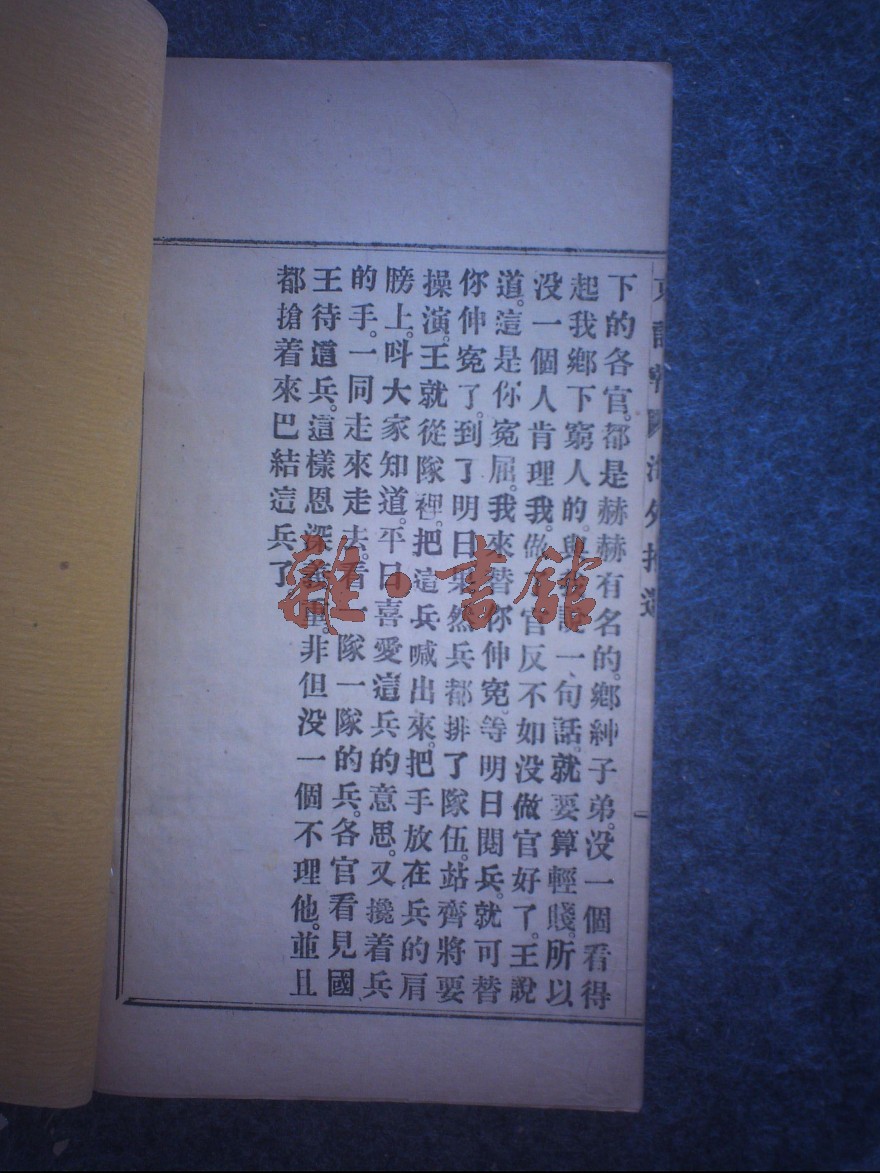 下的各官。都是赫赫有名的。鄉紳子弟。没一個看得
起我鄉下窮人的。與我説一句話。就要算輕賤。所以
没一個人肯理我。做了官反不如没做官好了。王說
道。這是你寃屈。我來替你伸寃。等明日閱兵。就可替
你伸寃了。到了明日。果然兵都排了隊伍。站齊將要
操演。王就從隊裡。把這兵喊出來。把手放在兵的肩
膀上。呌大家知道。平日喜愛這兵的意思。又攙着兵
的手。一同走來走去。看一隊一隊的兵。各官看見國
王待這兵。這樣恩深 重。非但没一個不理他。並且
都搶着來巴結這兵了
雜·書館